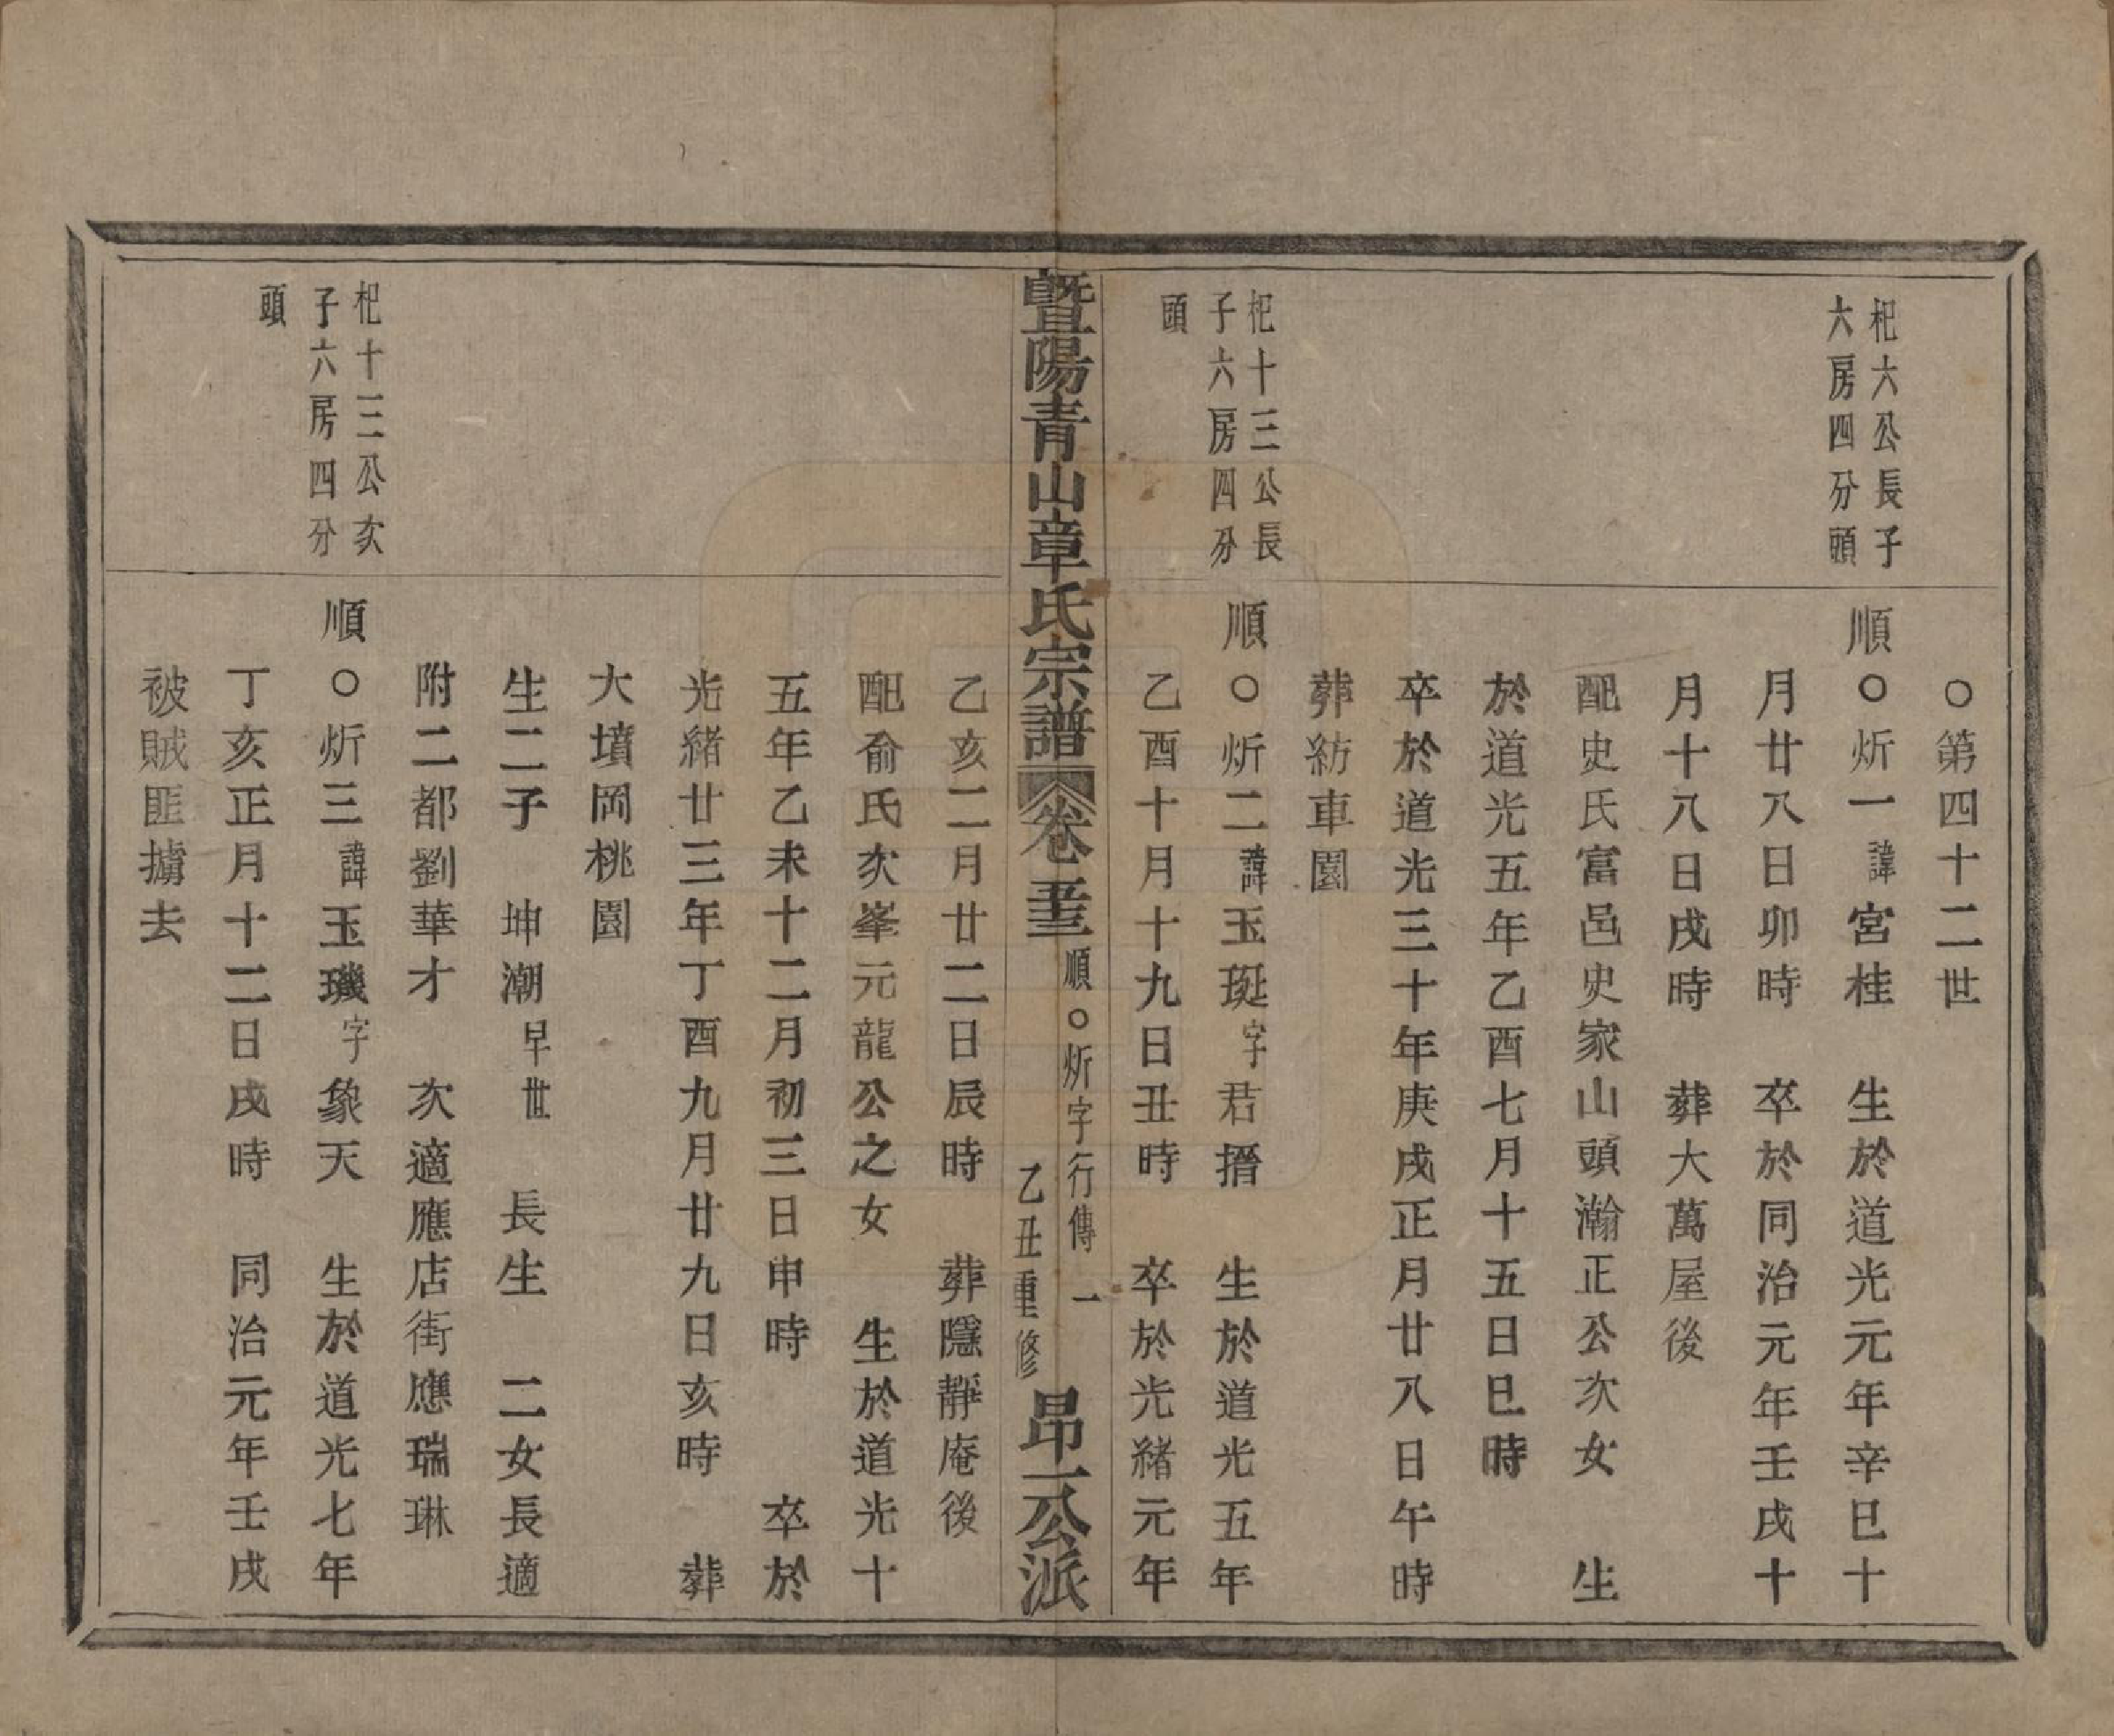 ○第四十二世
杞六公長子
六房四分頭
順○炘一諱宮桂　生於道光元年辛巳十
月廿八日卯時　卒於同治元年壬戌十
月十八日戌時　葬大萬屋後
配史氏富邑史家山頭瀚正公次女　生
於道光五年乙酉七月十五日巳時
卒於道光三十年庚戌正月廿八日午時
葬紡車園
杞十三公長
子六房四分
頭
順○炘二諱玉珽字君搢　生於道光五年
乙酉十月十九日丑時　卒於光緒元年
暨陽青山章氏宗譜
卷
順○炘字行傳　一
乙丑重修
昂一公派
乙亥二月廿二日辰時　葬隱靜庵後
配俞氏次峯元龍公之女　生於道光十
五年乙未十二月初三日申時　卒於
光緒廿三年丁酉九月廿九日亥時　葬
大墳岡桃園
生二子　坤潮早世　長生　二女長適
附二都劉華才　次適應店街應瑞琳
杞十三公次
子六房四分
頭
順○炘三諱玉璣字象天　生於道光七年
丁亥正月十二日戌時　同治元年壬戌
被賊匪擄去